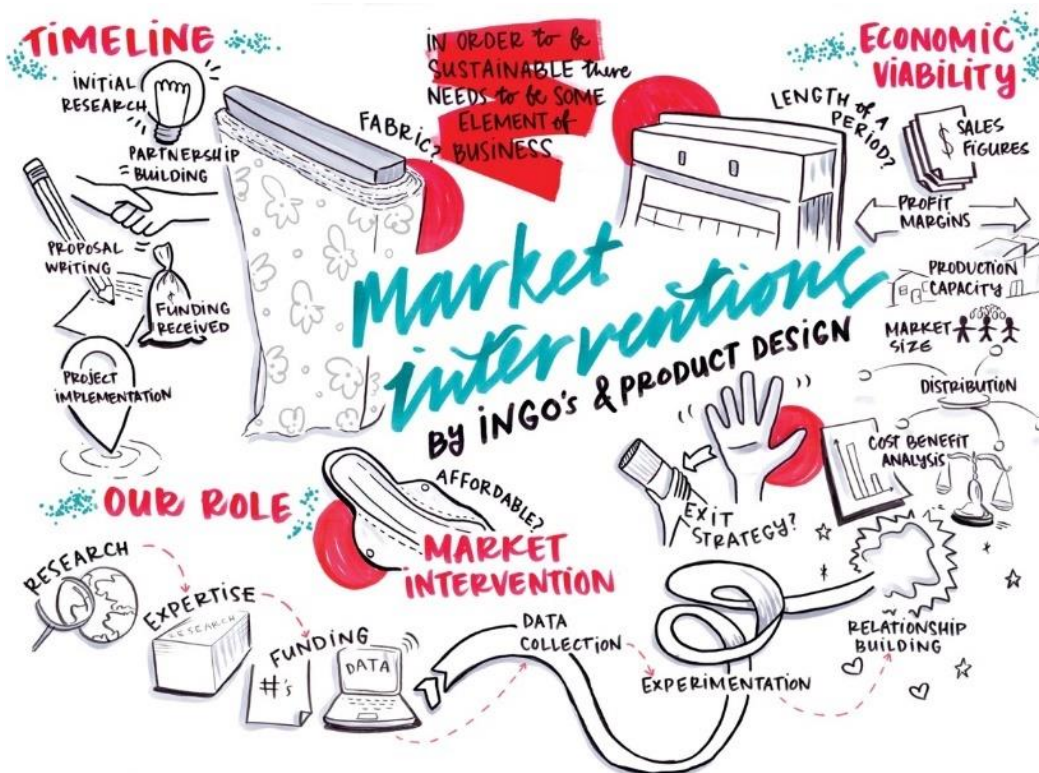 TIMELINE
INITIAL
RESEARCH
PARTNERSHIP
BUILDING
PROPOSAL
WRITING
$
FUNDING
RECEIVED
PROJECT
IMPLEMENTATION
FABRIC?
IN ORDER to be
SUSTAINABLE there
NEEDS to be SOME
ELEMENT of
BUSINESS
LENGTH of a
PERIOD?
ECONOMIC
VIABILITY
$ SALES
FIGURES
PROFIT
MARGINS
PRODUCTION
CAPACITY
MARKET
SIZE
DISTRIBUTION
COST BENEFIT
ANALYSIS
Market
interventions
BY INGO's & PRODUCT DESIGN
EXIT
STRATEGY?
AFFORDABLE?
OUR ROLE
RESEARCH
EXPERTISE
RESEARCH
FUNDING
#'s
DATA
MARKET
INTERVENTION
DATA
COLLECTION
EXPERIMENTATION
RELATIONSHIP
BUILDING